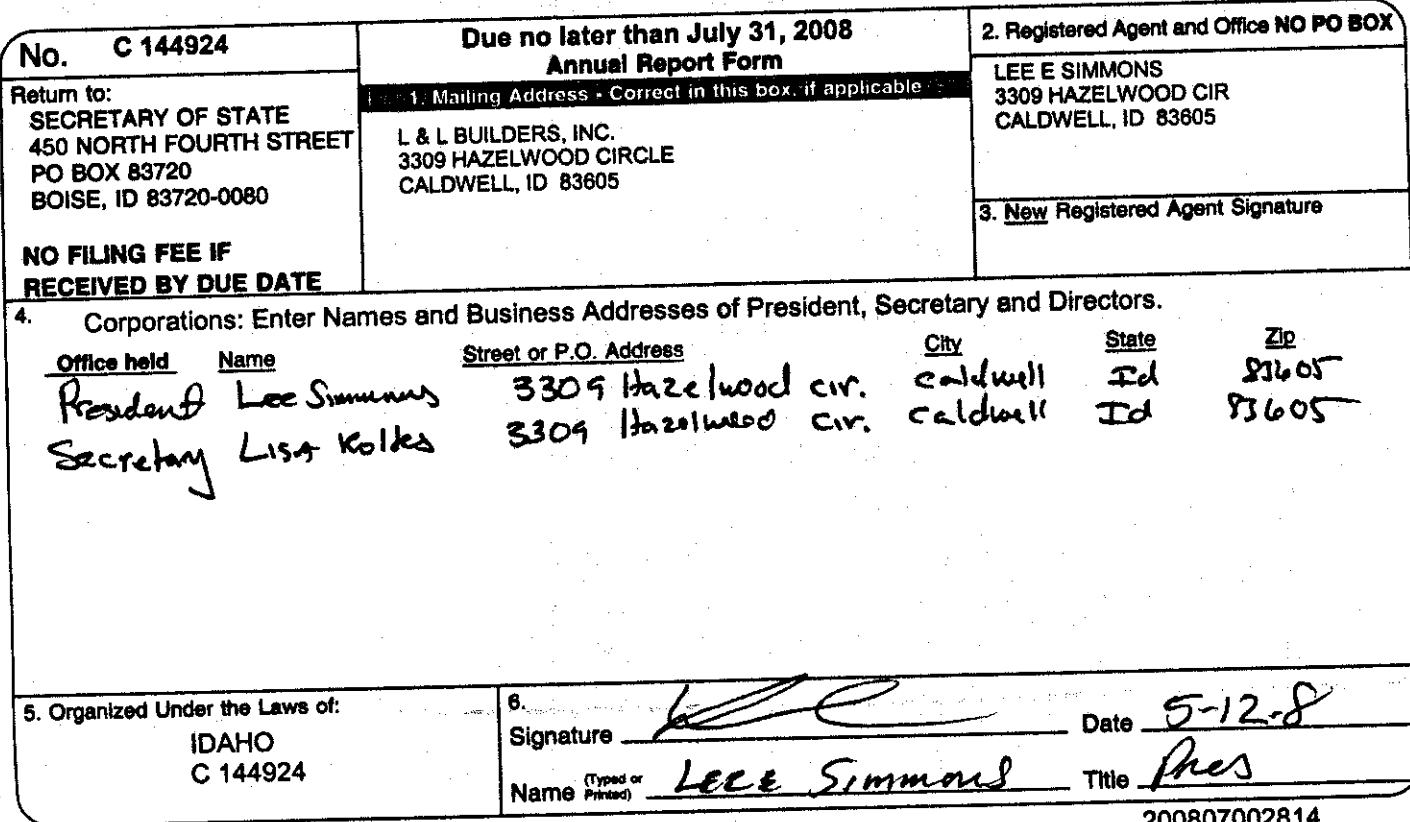 No. C 144924
Return to:
SECRETARY OF STATE
450 NORTH FOURTH STREET
PO BOX 83720
BOISE, ID 83720-0080
NO FILING FEE IF
RECEIVED BY DUE DATE
Due no later than July 31, 2008
Annual Report Form
1. Mailing Address - Correct in this box, if applicable
L & L BUILDERS, INC.
3309 HAZELWOOD CIRCLE
CALDWELL, ID 83605
2. Registered Agent and Office NO PO BOX
LEE E SIMMONS
3309 HAZELWOOD CIR
CALDWELL, ID 83605
3. New Registered Agent Signature
4. Corporations: Enter Names and Business Addresses of President, Secretary and Directors.
Office held Name Street or P.O. Address City State Zip
President Lee Simmons 3309 Hazelwood cir. caldwell Id 83605
Secretary Lisa Koltes 3309 Hazelwood cir. caldwell Id 83605
5. Organized Under the Laws of:
IDAHO
C 144924
6.
Signature Date 5-12-8
Name (Typed or Printed) Lee E Simmons Title Pres
200807002814